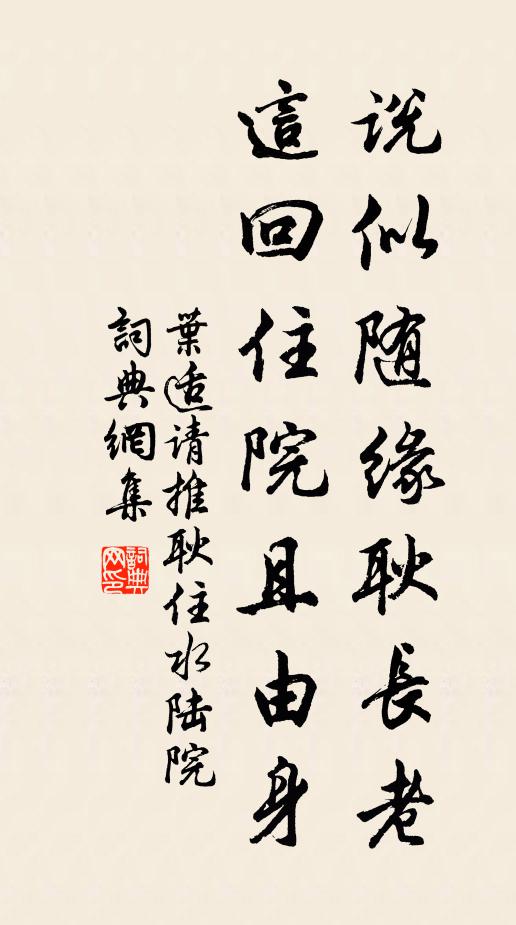 说似随缘耿長老
這回住院且由身
葉适请推耿住水陆院
詞典網集
詞典网印